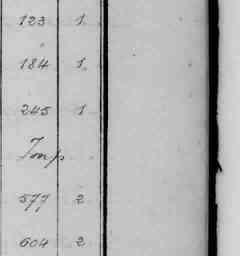 123 1
184 1
245 1
Imp
577 2
604 2